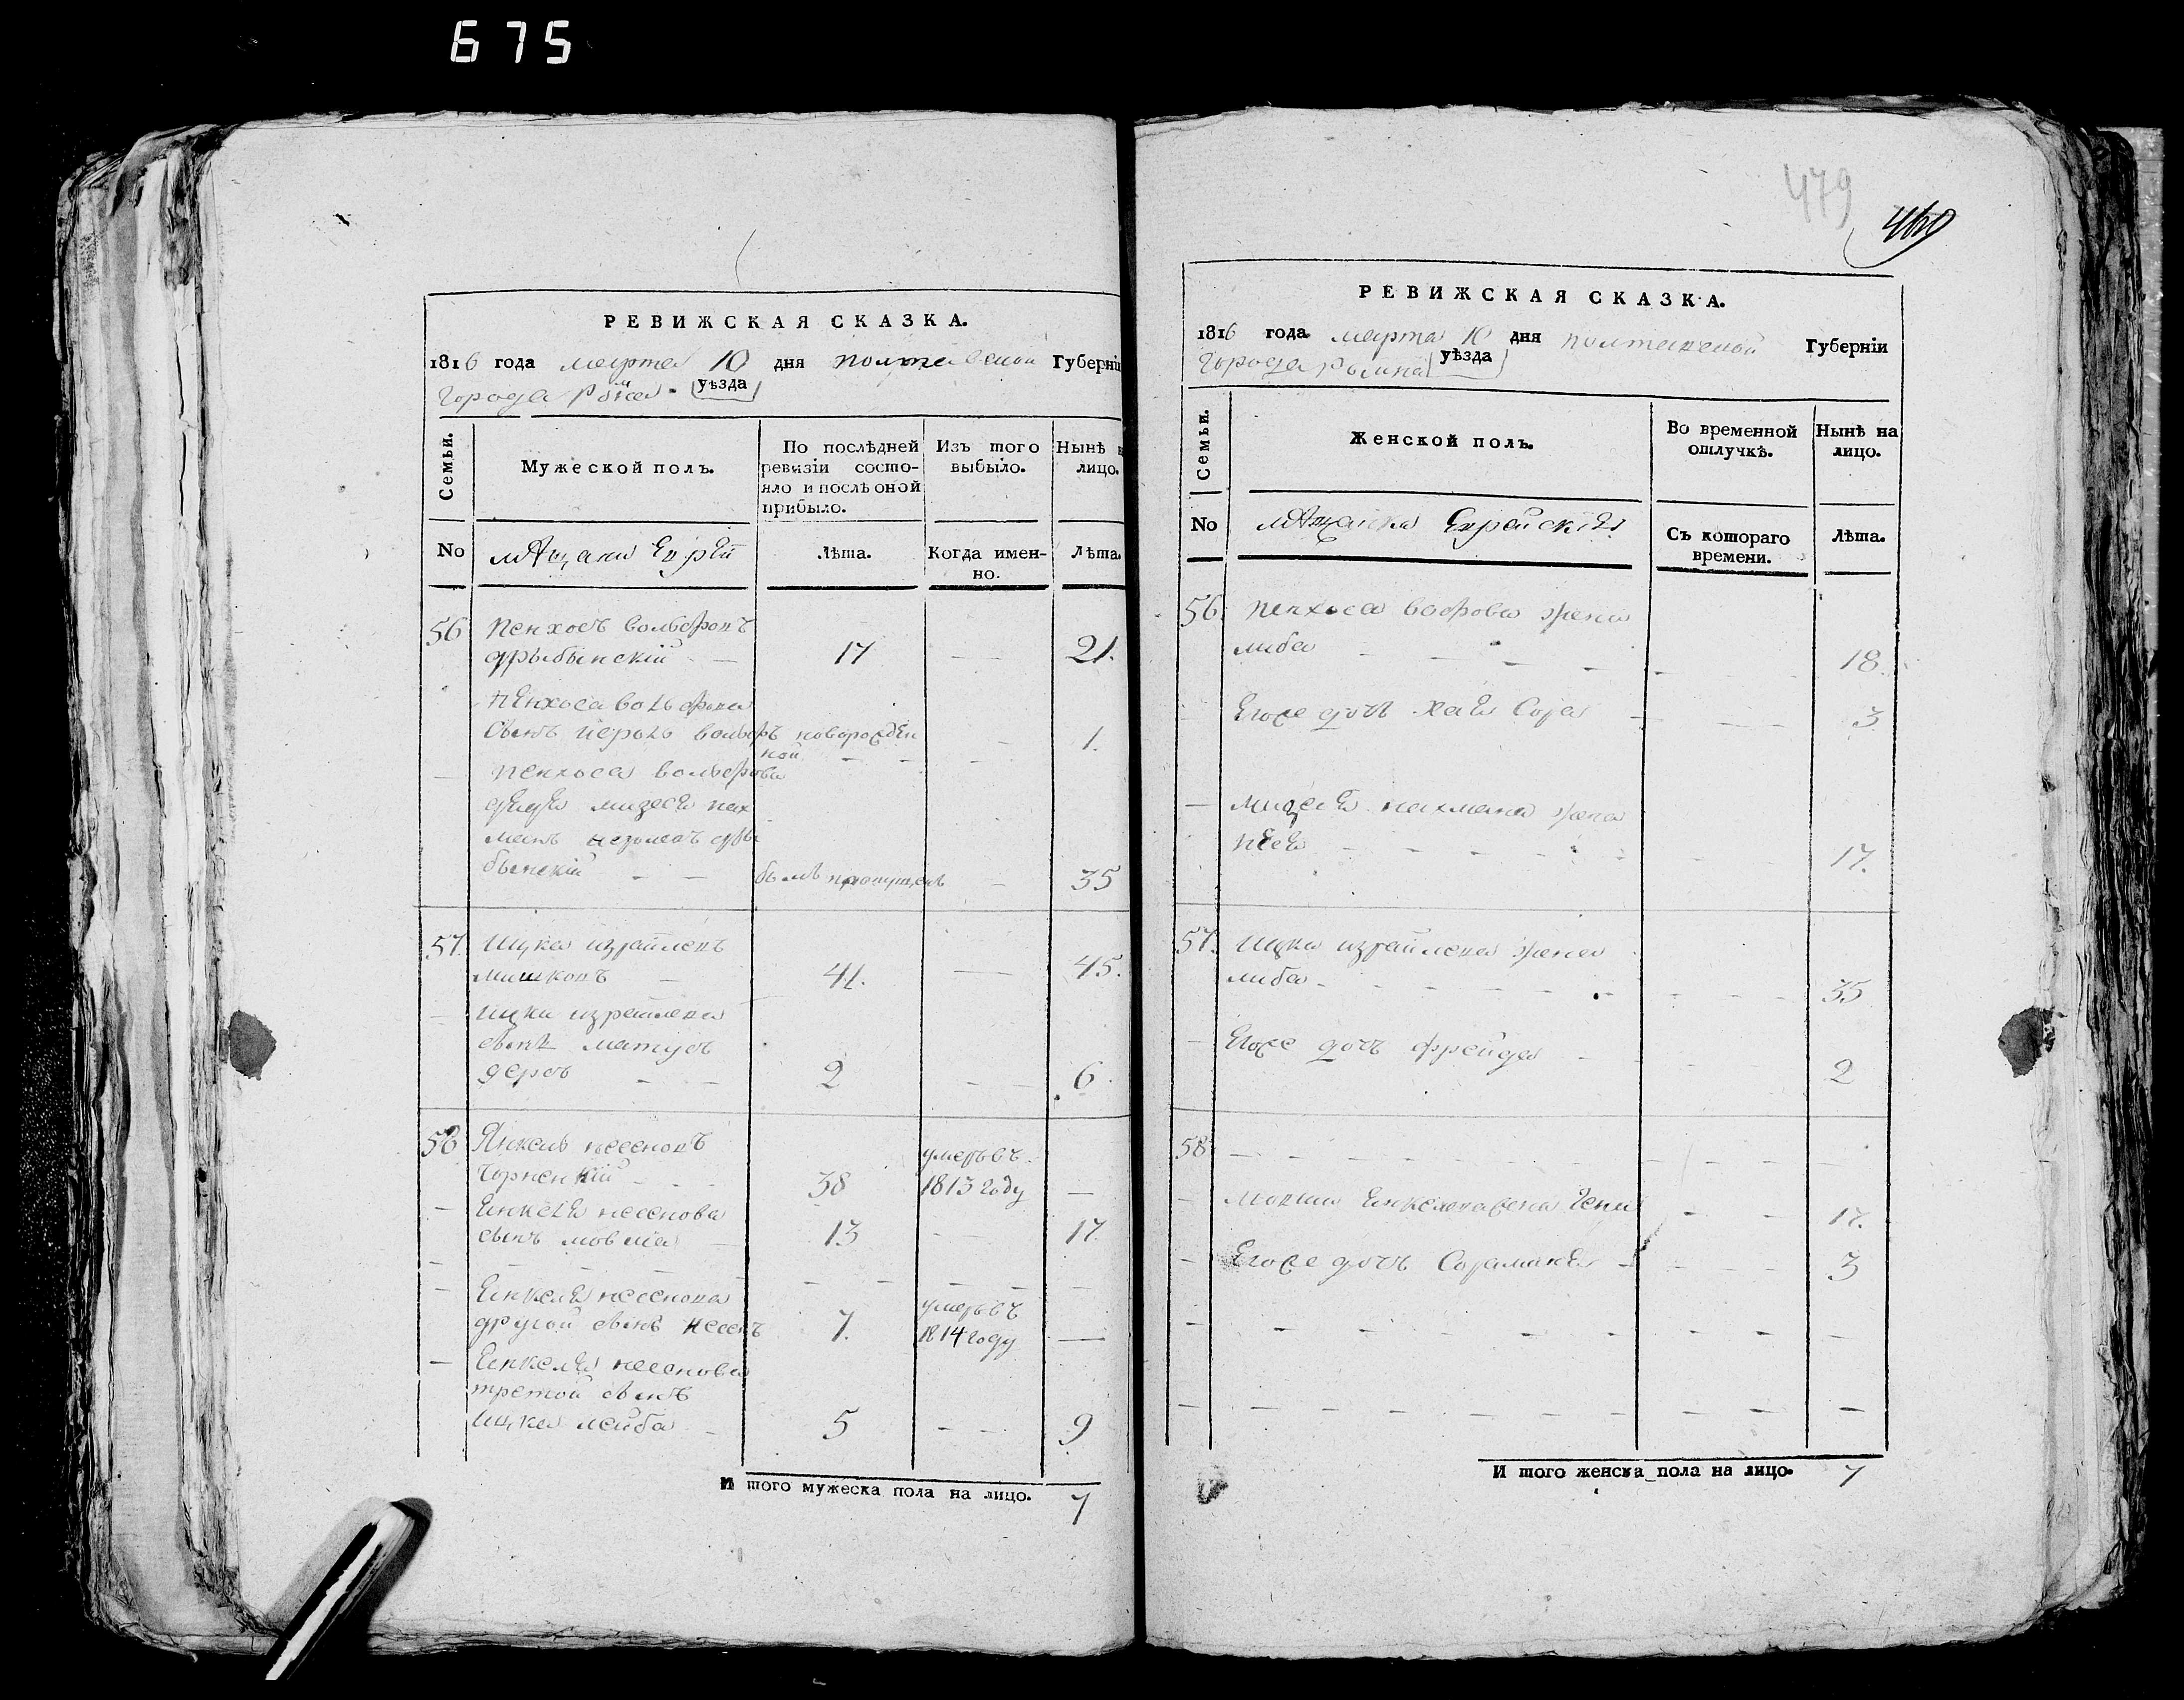 675
РЕВИЖСКАЯ СКАЗКА.
1816 года марта 10 дня полтавской Губерніи
Города уѣзда
Семьи.
Мужеской полъ.
По послѣдней ревизіи состо-яло и послѣ оной прибыло.
Изъ того выбыло.
Нынѣ на лицо.
No
мѣщане Евреи
Лѣта.
Когда имен-но.
Лѣта.
56 Пенхосъ вольфовъ
дрыбинскій 17 21.
Пенхоса вольфова
сынъ новорожден 1.
ной
Пенхоса вольфова
дядя нах
манъ
бинскій былъ пропущенъ 35
57. Ицка израилевъ
мишковъ 41. 45.
Ицки израилева
сынъ матусъ
2 6.
58 Янкель несеновъ умеръ въ
38 1813 году
Янкеля несенова
сынъ мовша 13 17.
Янкеля несенова умеръ въ
другой сынъ несенъ 7. 1814 году
Янкеля несенова
третой сынъ
Ицка лейба 5 9
И того мужеска пола на лицо. 7
479
469
РЕВИЖСКАЯ СКАЗКА.
1816 года марта 10 дня полтавской Губерніи
Города уѣзда
Семьи.
Женской полъ.
Во временной отлучкѣ.
Нынѣ на лицо.
No
мѣщанки Еврейскія
Съ котораго времени.
Лѣта.
56. Пенхоса вофова жена
либа 18.
Егоже дочь хая Сора 3
нахмана жена
17.
57. Ицки израилева жена
либа 35
Егоже дочь фрейда 2
58
жена 17.
Егоже дочь 3
И того женска пола на лицо. 7